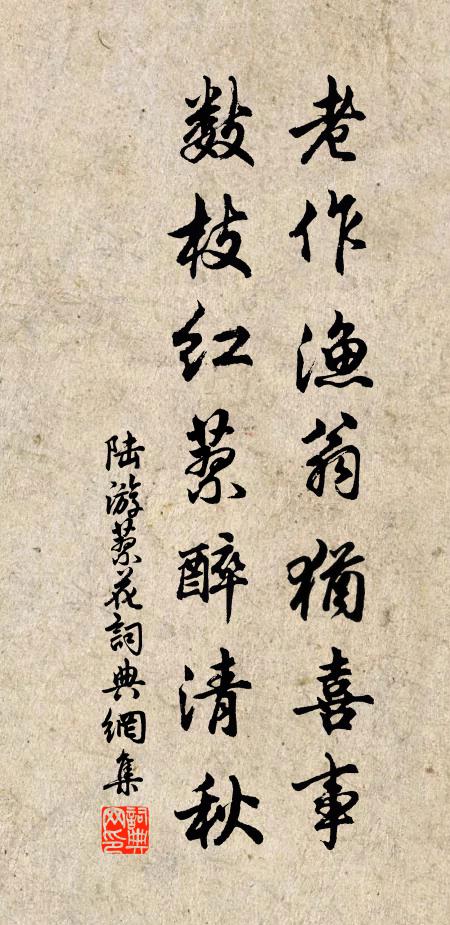 老作漁翁犹喜事
数枝红蓼醉清秋
陆游蓼花詞典網集
詞典网印